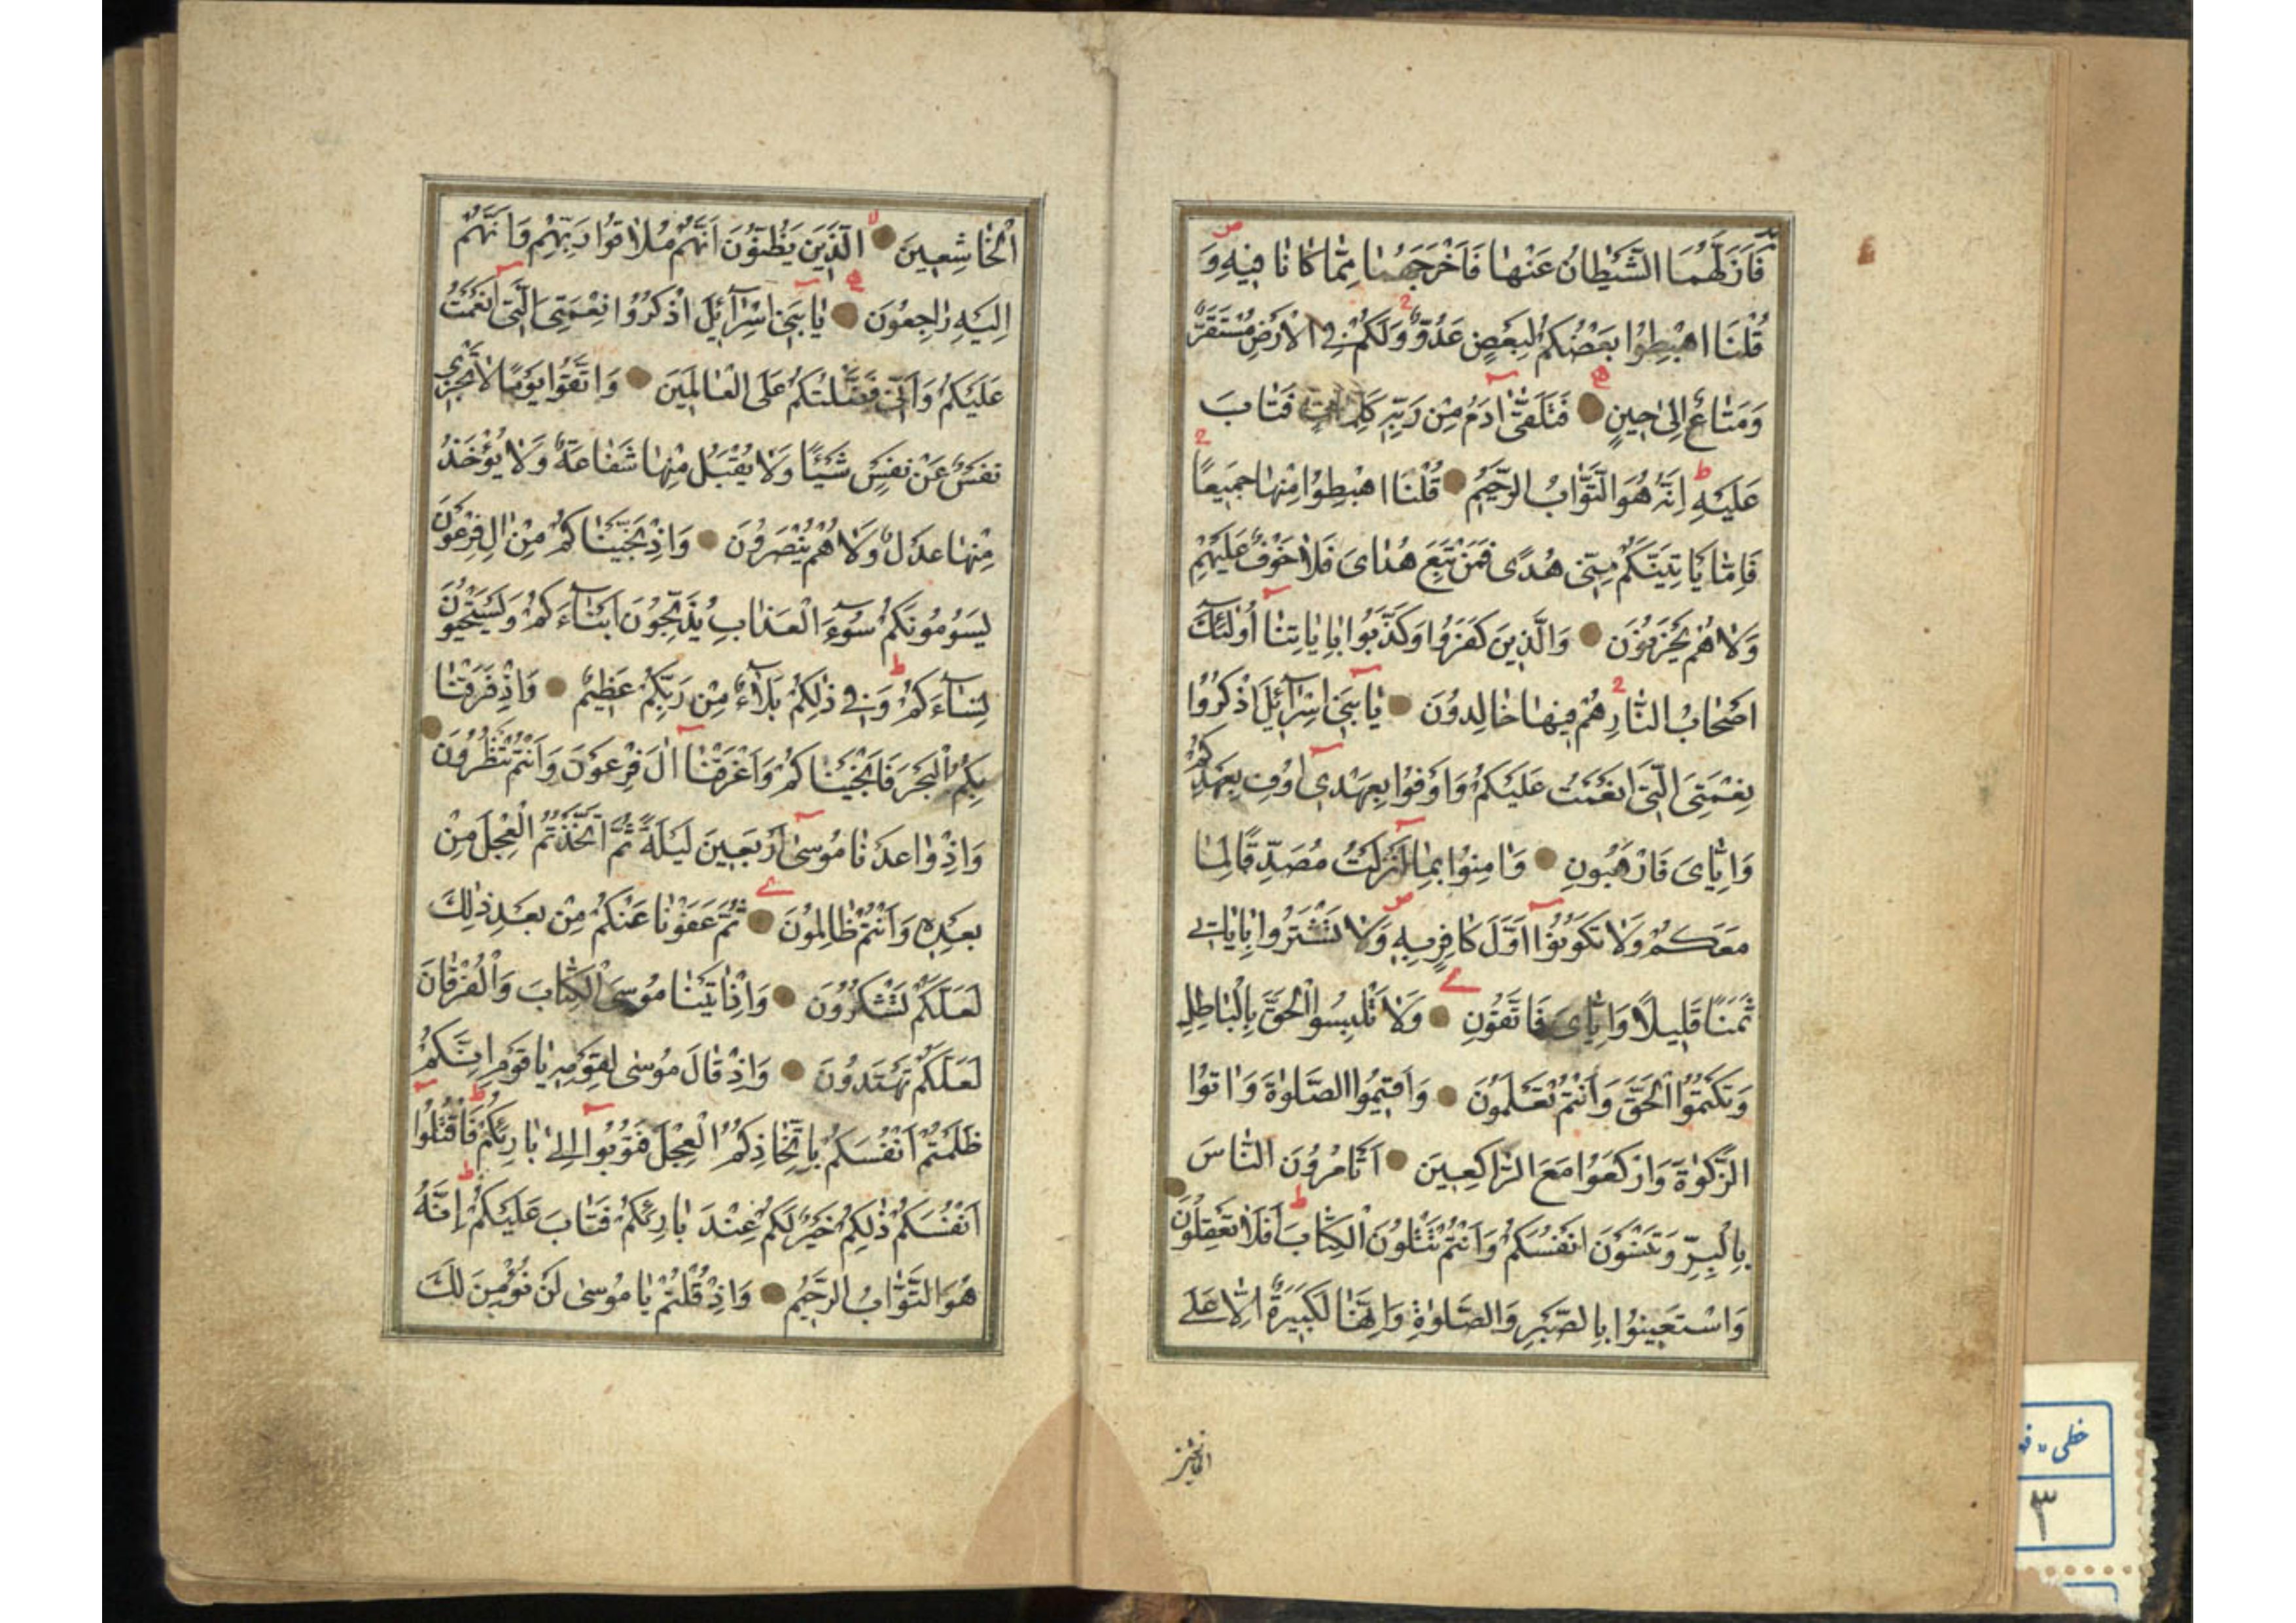 فَاَزَلَّهُمَا الشَّيْطَانُ عَنْهَا فَاَخْرَجَهُمَا مِمَّا كَانَا فِيهِ وَ
قُلْنَا اهْبِطُوا بَعْضُكُمْ لِبَعْضٍ عَدُوٌّ وَلَكُمْ فِي الْاَرْضِ مُسْتَقَرٌّ
وَمَتَاعٌ اِلٰى حِينٍ فَتَلَقّٰى اٰدَمُ مِنْ رَبِّهِ كَلِمَاتٍ فَتَابَ
عَلَيْهِ اِنَّهُ هُوَ التَّوَّابُ الرَّحِيمُ قُلْنَا اهْبِطُوا مِنْهَا جَمِيعًا
فَاِمَّا يَاْتِيَنَّكُمْ مِنِّي هُدًى فَمَنْ تَبِعَ هُدَايَ فَلَا خَوْفٌ عَلَيْهِمْ
وَلَا هُمْ يَحْزَنُونَ وَالَّذِينَ كَفَرُوا وَكَذَّبُوا بِاٰيَاتِنَا اُولٰئِكَ
اَصْحَابُ النَّارِ هُمْ فِيهَا خَالِدُونَ يَا بَنِي اِسْرَآئِيلَ اذْكُرُوا
نِعْمَتِيَ الَّتِي اَنْعَمْتُ عَلَيْكُمْ وَاَوْفُوا بِعَهْدِي اُوفِ بِعَهْدِكُمْ
وَاِيَّايَ فَارْهَبُونِ وَاٰمِنُوا بِمَا اَنْزَلْتُ مُصَدِّقًا لِمَا
مَعَكُمْ وَلَا تَكُونُوا اَوَّلَ كَافِرٍ بِهِ وَلَا تَشْتَرُوا بِاٰيَاتِي
ثَمَنًا قَلِيلًا وَاِيَّايَ فَاتَّقُونِ وَلَا تَلْبِسُوا الْحَقَّ بِالْبَاطِلِ
وَتَكْتُمُوا الْحَقَّ وَاَنْتُمْ تَعْلَمُونَ وَاَقِيمُوا الصَّلٰوةَ وَاٰتُوا
الزَّكٰوةَ وَارْكَعُوا مَعَ الرَّاكِعِينَ اَتَاْمُرُونَ النَّاسَ
بِالْبِرِّ وَتَنْسَوْنَ اَنْفُسَكُمْ وَاَنْتُمْ تَتْلُونَ الْكِتَابَ اَفَلَا تَعْقِلُونَ
وَاسْتَعِينُوا بِالصَّبْرِ وَالصَّلٰوةِ وَاِنَّهَا لَكَبِيرَةٌ اِلَّا عَلَى
الْخَاشِعِينَ الَّذِينَ يَظُنُّونَ اَنَّهُمْ مُلَاقُوا رَبِّهِمْ وَاَنَّهُمْ
اِلَيْهِ رَاجِعُونَ يَا بَنِي اِسْرَآئِيلَ اذْكُرُوا نِعْمَتِيَ الَّتِي اَنْعَمْتُ
عَلَيْكُمْ وَاَنِّي فَضَّلْتُكُمْ عَلَى الْعَالَمِينَ وَاتَّقُوا يَوْمًا لَا تَجْزِي
نَفْسٌ عَنْ نَفْسٍ شَيْئًا وَلَا يُقْبَلُ مِنْهَا شَفَاعَةٌ وَلَا يُؤْخَذُ
مِنْهَا عَدْلٌ وَلَا هُمْ يُنْصَرُونَ وَاِذْ نَجَّيْنَاكُمْ مِنْ اٰلِ فِرْعَوْنَ
يَسُومُونَكُمْ سُوٓءَ الْعَذَابِ يُذَبِّحُونَ اَبْنَآءَكُمْ وَيَسْتَحْيُونَ
نِسَآءَكُمْ وَفِي ذٰلِكُمْ بَلَآءٌ مِنْ رَبِّكُمْ عَظِيمٌ وَاِذْ فَرَقْنَا
بِكُمُ الْبَحْرَ فَاَنْجَيْنَاكُمْ وَاَغْرَقْنَا اٰلَ فِرْعَوْنَ وَاَنْتُمْ تَنْظُرُونَ
وَاِذْ وَاعَدْنَا مُوسٰى اَرْبَعِينَ لَيْلَةً ثُمَّ اتَّخَذْتُمُ الْعِجْلَ مِنْ
بَعْدِهِ وَاَنْتُمْ ظَالِمُونَ ثُمَّ عَفَوْنَا عَنْكُمْ مِنْ بَعْدِ ذٰلِكَ
لَعَلَّكُمْ تَشْكُرُونَ وَاِذْ اٰتَيْنَا مُوسَى الْكِتَابَ وَالْفُرْقَانَ
لَعَلَّكُمْ تَهْتَدُونَ وَاِذْ قَالَ مُوسٰى لِقَوْمِهِ يَا قَوْمِ اِنَّكُمْ
ظَلَمْتُمْ اَنْفُسَكُمْ بِاتِّخَاذِكُمُ الْعِجْلَ فَتُوبُوا اِلٰى بَارِئِكُمْ فَاقْتُلُوا
اَنْفُسَكُمْ ذٰلِكُمْ خَيْرٌ لَكُمْ عِنْدَ بَارِئِكُمْ فَتَابَ عَلَيْكُمْ اِنَّهُ
هُوَ التَّوَّابُ الرَّحِيمُ وَاِذْ قُلْتُمْ يَا مُوسٰى لَنْ نُؤْمِنَ لَكَ
خطی
۳